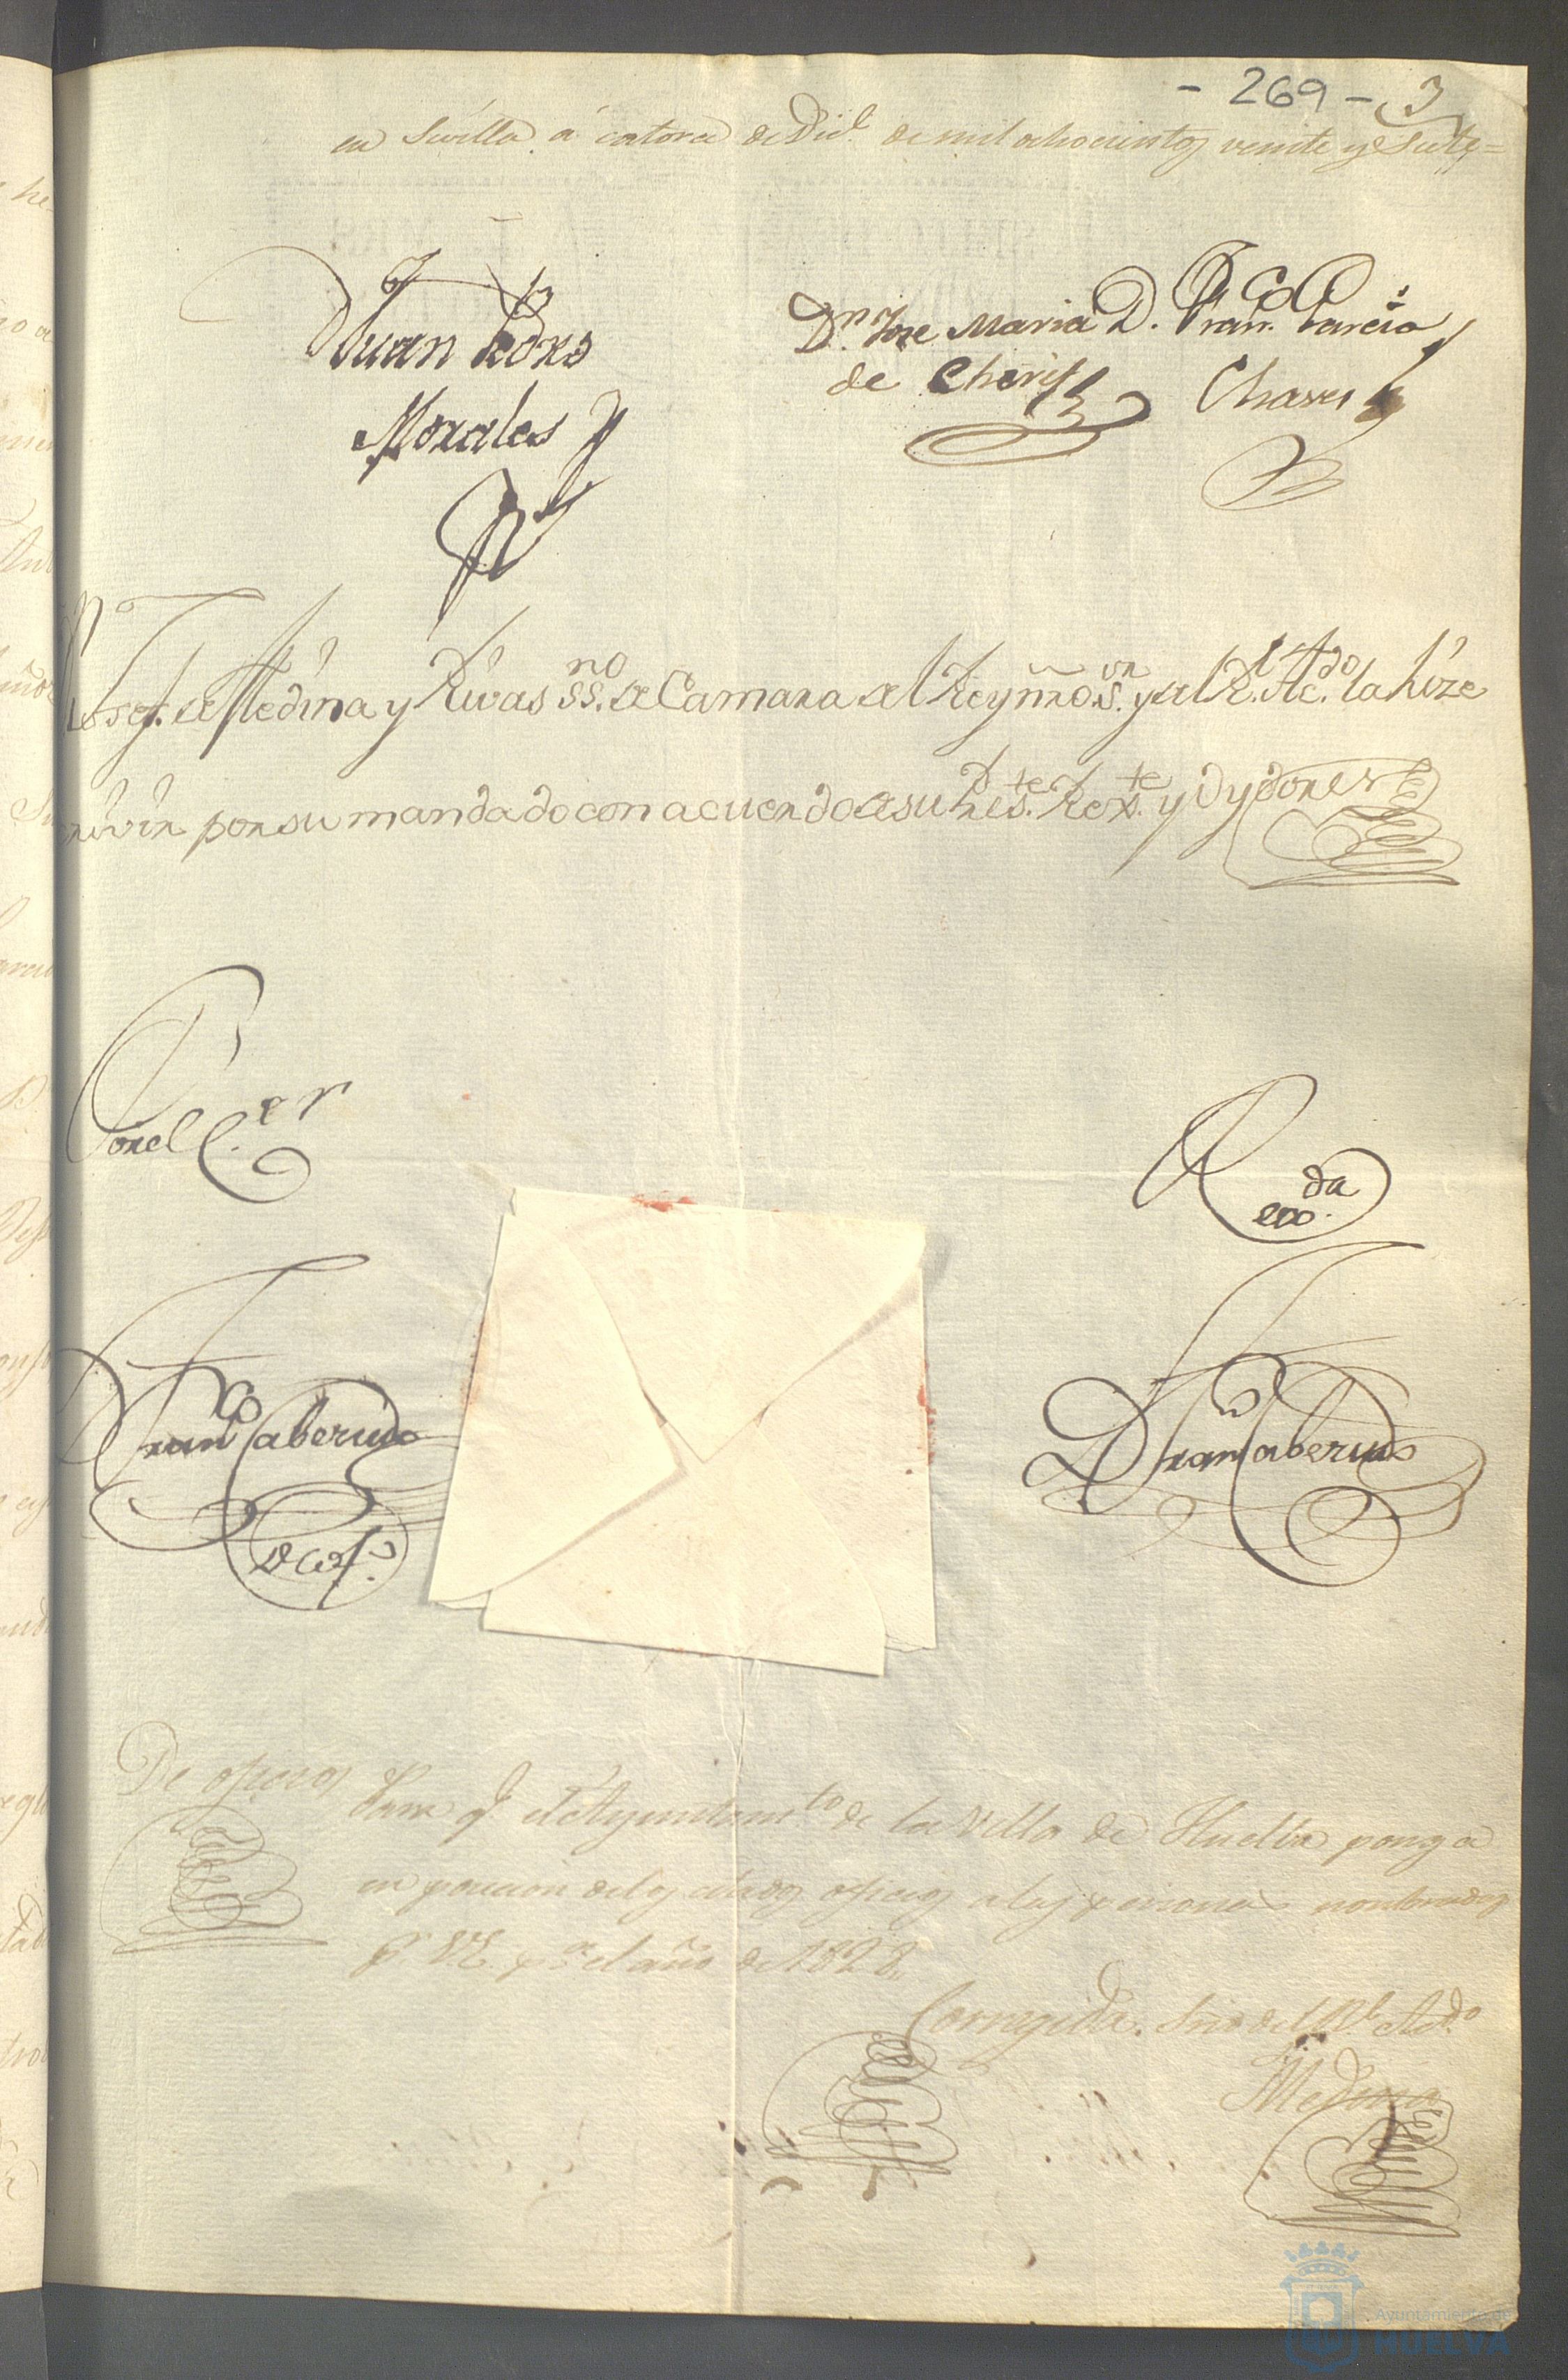 - 269 - 3
en Sevilla á catorce de Dic.e de mil ochocientos veinte y siete=
Juan
Morales
Dn. Jose Maria
de Cheris
D. Fran.co Garcia
Chaves
Yo Josef. de Medina y Rivas ss.no de Camara del Rey ñro. s.or y del R.l Ac.do la hize
escrivir por su mandado con acuerdo de su Reg.te y Oydores
Por el C.er
R.da
Fran.co Taberner
D. Fran.co Taberner
De oficio
Para q.e el Ayuntam.to de la Villa de Huelva ponga
en posecion de los citados oficios a las personas nombradas
p.r V.E. p.a el año de 1828.
Corregida. Srio del R.l Ac.do
Medina
Ayuntamiento de
HUELVA